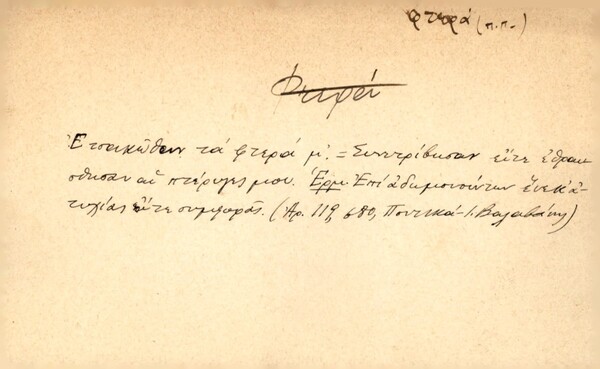 φτερά (π.π.)
Φτερόν
Ἐτσακῶθαν τά φτερά μ'. = Συνετρίβησαν εἴτε ἐθραύ
σθησαν αἱ πτέρυγες μου. Ἑρμ. Ἐπί ἀδημονούντων ἕνεκ' ἀ
τυχίας εἴτε συμφορᾶς. (Ἀρ. 119, 680, Ποντικά - Ι. Βαλαβάνης)